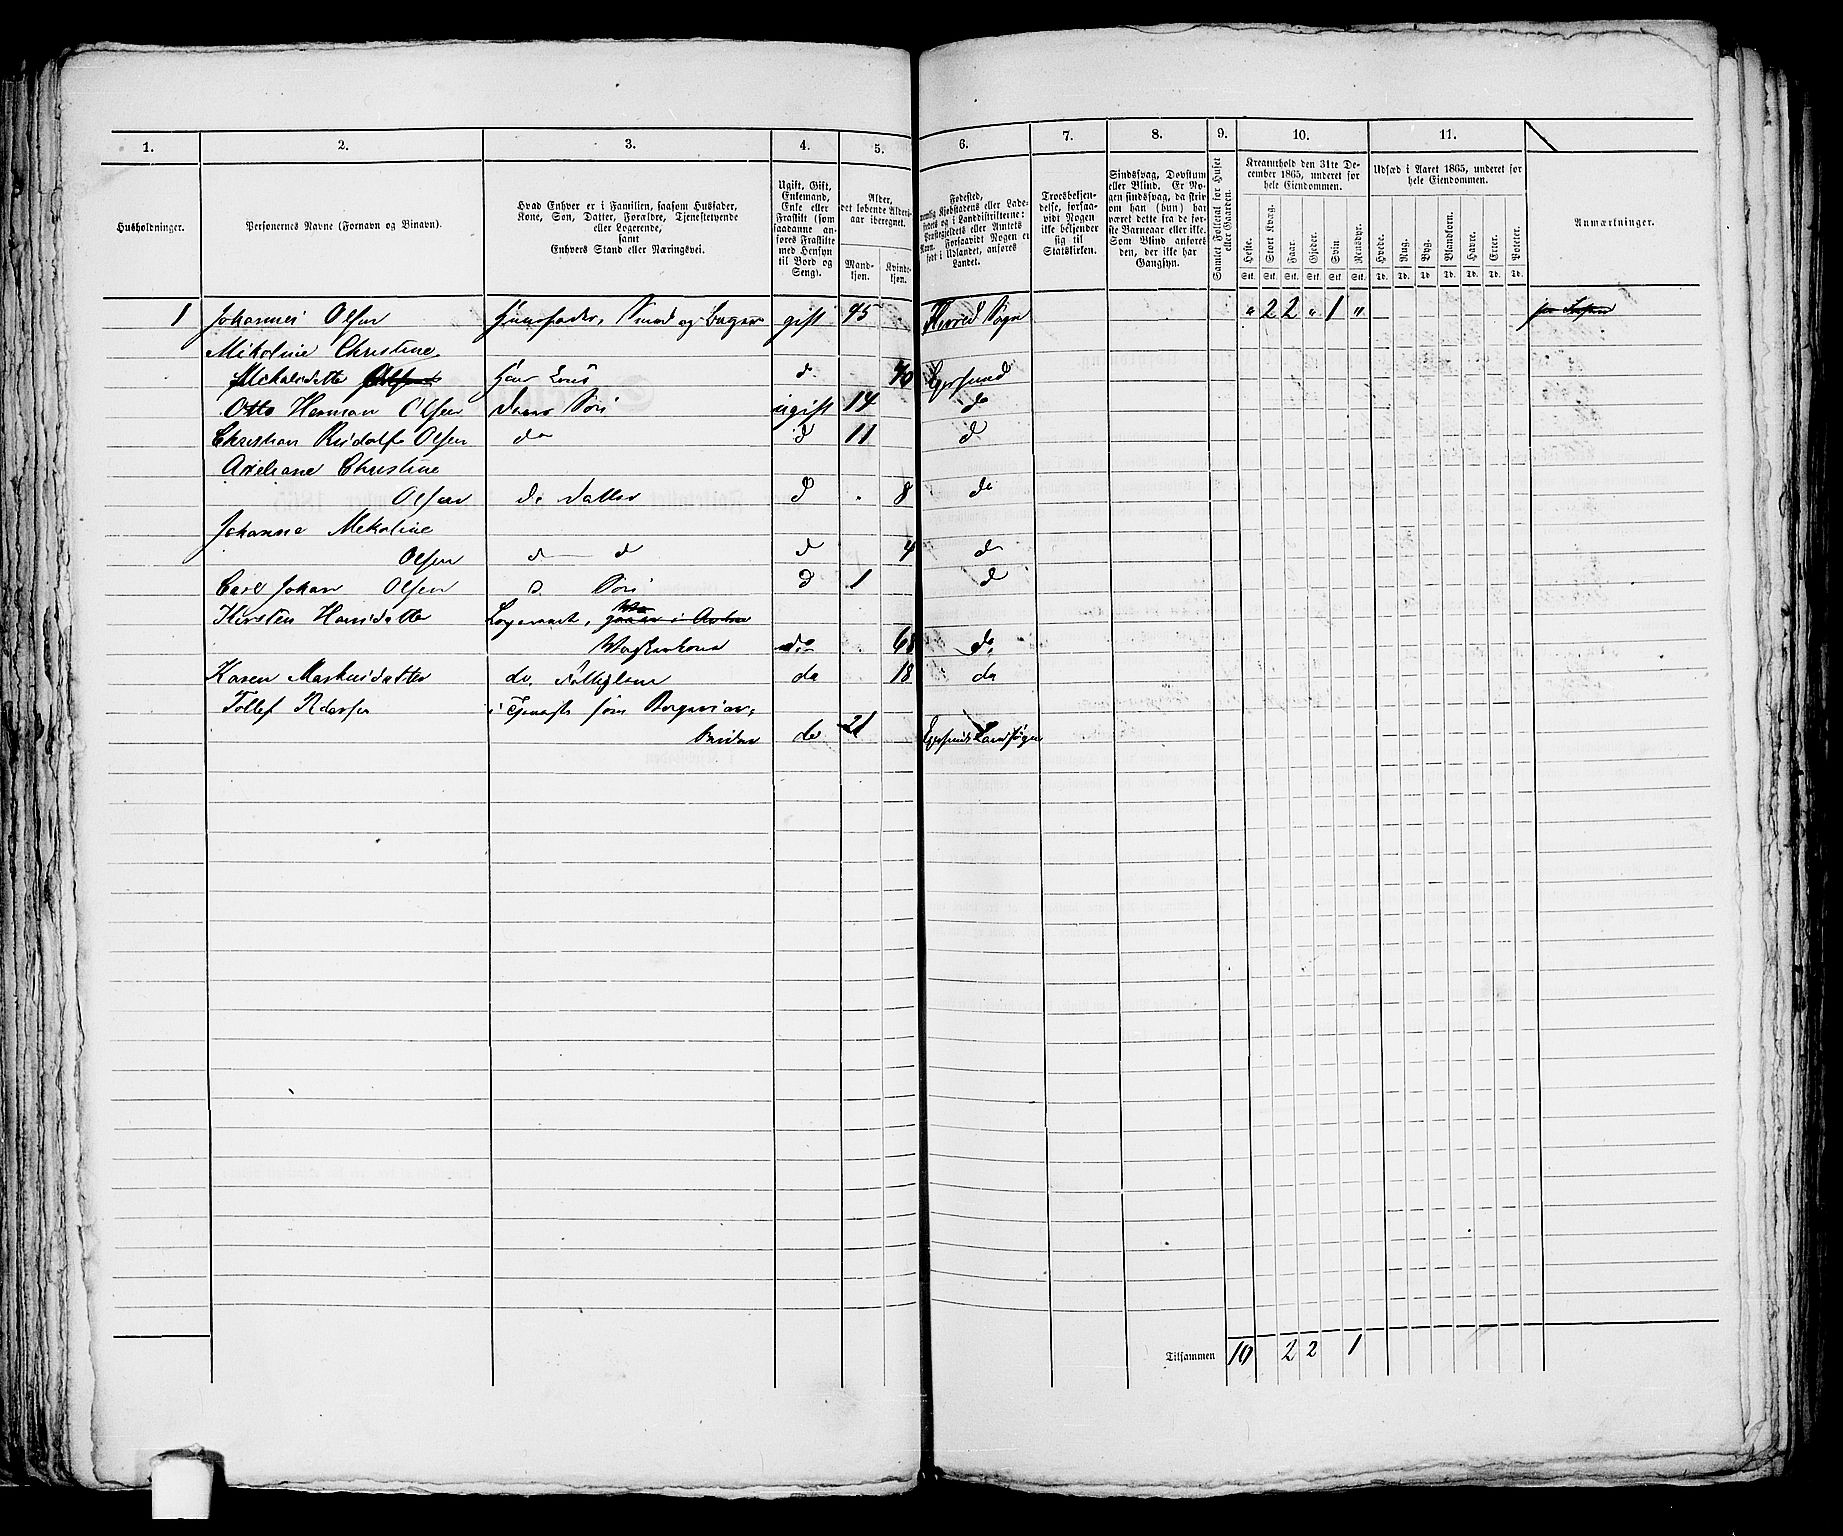 1. 2. 3. 4. 5. 6. 7. 8. 9. 10. 11.
Husholdninger.
Personernes Navne (Fornavn og Binavn).
Hvad Enhver er i Familien, saasom Husfader,
Kone, Søn, Datter, Forældre, Tjenestetyende
eller Logerende,
samt
Enhvers Stand eller Næringsvei.
Ugift, Gift,
Enkemand,
Enke eller
Fraskilt (som
saadanne an-
føres Fraskilte
med Hensyn
til Bord og
Seng).
Alder,
det løbende Alders-
aar iberegnet.
Mand-
kjøn.
Kvinde-
kjøn.
Fødested,
nemlig Kjøbstadens eller Lade-
stedets og i Landdistrikterne:
Præstegjeldets eller Amtets
Navn. Forsaavidt Nogen er
født i Udlandet, anføres
Landet.
Troesbekjen-
delse, forsaa-
vidt Nogen
ikke bekjender
sig til
Statskirken.
Sindssvag, Døvstum
eller Blind. Er No-
gen sindssvag, da skriv
om han (hun) har
været dette fra de før-
ste Barneaar eller ikke.
Som Blind anføres
den, der ikke har
Gangsyn.
Samlet Folketal for Huset
eller Gaarden.
Kreaturhold den 31te De-
cember 1865, underet for
hele Eiendommen.
Heste. Stort Kvæg. Faar. Gjeder. Svin Rensdyr.
Stk. Stk. Stk. Stk. Stk. Stk.
Udsæd i Aaret 1865, underet for
hele Eiendommen.
Hvede. Rug. Byg. Blandkorn. Havre. Erter. Poteter.
Td. Td. Td. Td. Td. Td. Td.
Anmærkninger.
1 Johannes Olsen Huusfader, Smed og gift 45 Sogn " 2 2 " 1 "
Mikoline Christine
Mekalsdatter Olsen Hans Kone d 40 Egersund
Otto Herman Olsen Deres Søn ugift 14 do
Christian Rudolf Olsen do d 11 d
Axeliane Christine
Olsen do Datter d 8 do
Johanne Mekoline
Olsen d d d 4 do
Carl Johan Olsen d. Søn d 1 d
Kirsten Hansdatter Logerende,
Vaskerkone do 68 do
Karen Markusdatter do. do 18 do
Tollef i Tjeneste som
do 21 Egersunds Landsogn
Tilsammen 10 2 2 1